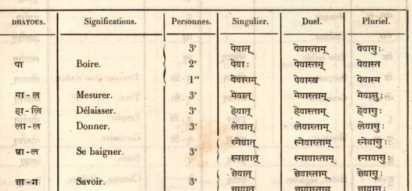 DHATOUS. Significations. Personnes. Singulier. Duel. Pluriel.
3ᵉ पेयात् पेयास्ताम् पेयासुः
पा Boire. 2ᵉ पेयाः पेयास्तम् पेयास्त
1ʳᵉ पेयासम् पेयास्व पेयास्म
मा-ल Mesurer. 3ᵉ मेयात् मेयास्ताम् मेयासुः
हा-लि Délaisser. 3ᵉ हेयात् हेयास्ताम् हेयासुः
ला-ल Donner. 3ᵉ लेयात् लेयास्ताम् लेयासुः
स्नेयात् स्नेयास्ताम् स्नेयासुः
Se baigner. 3ᵉ
स्नायात् स्नायास्ताम् स्नायासुः
Savoir. 3ᵉ